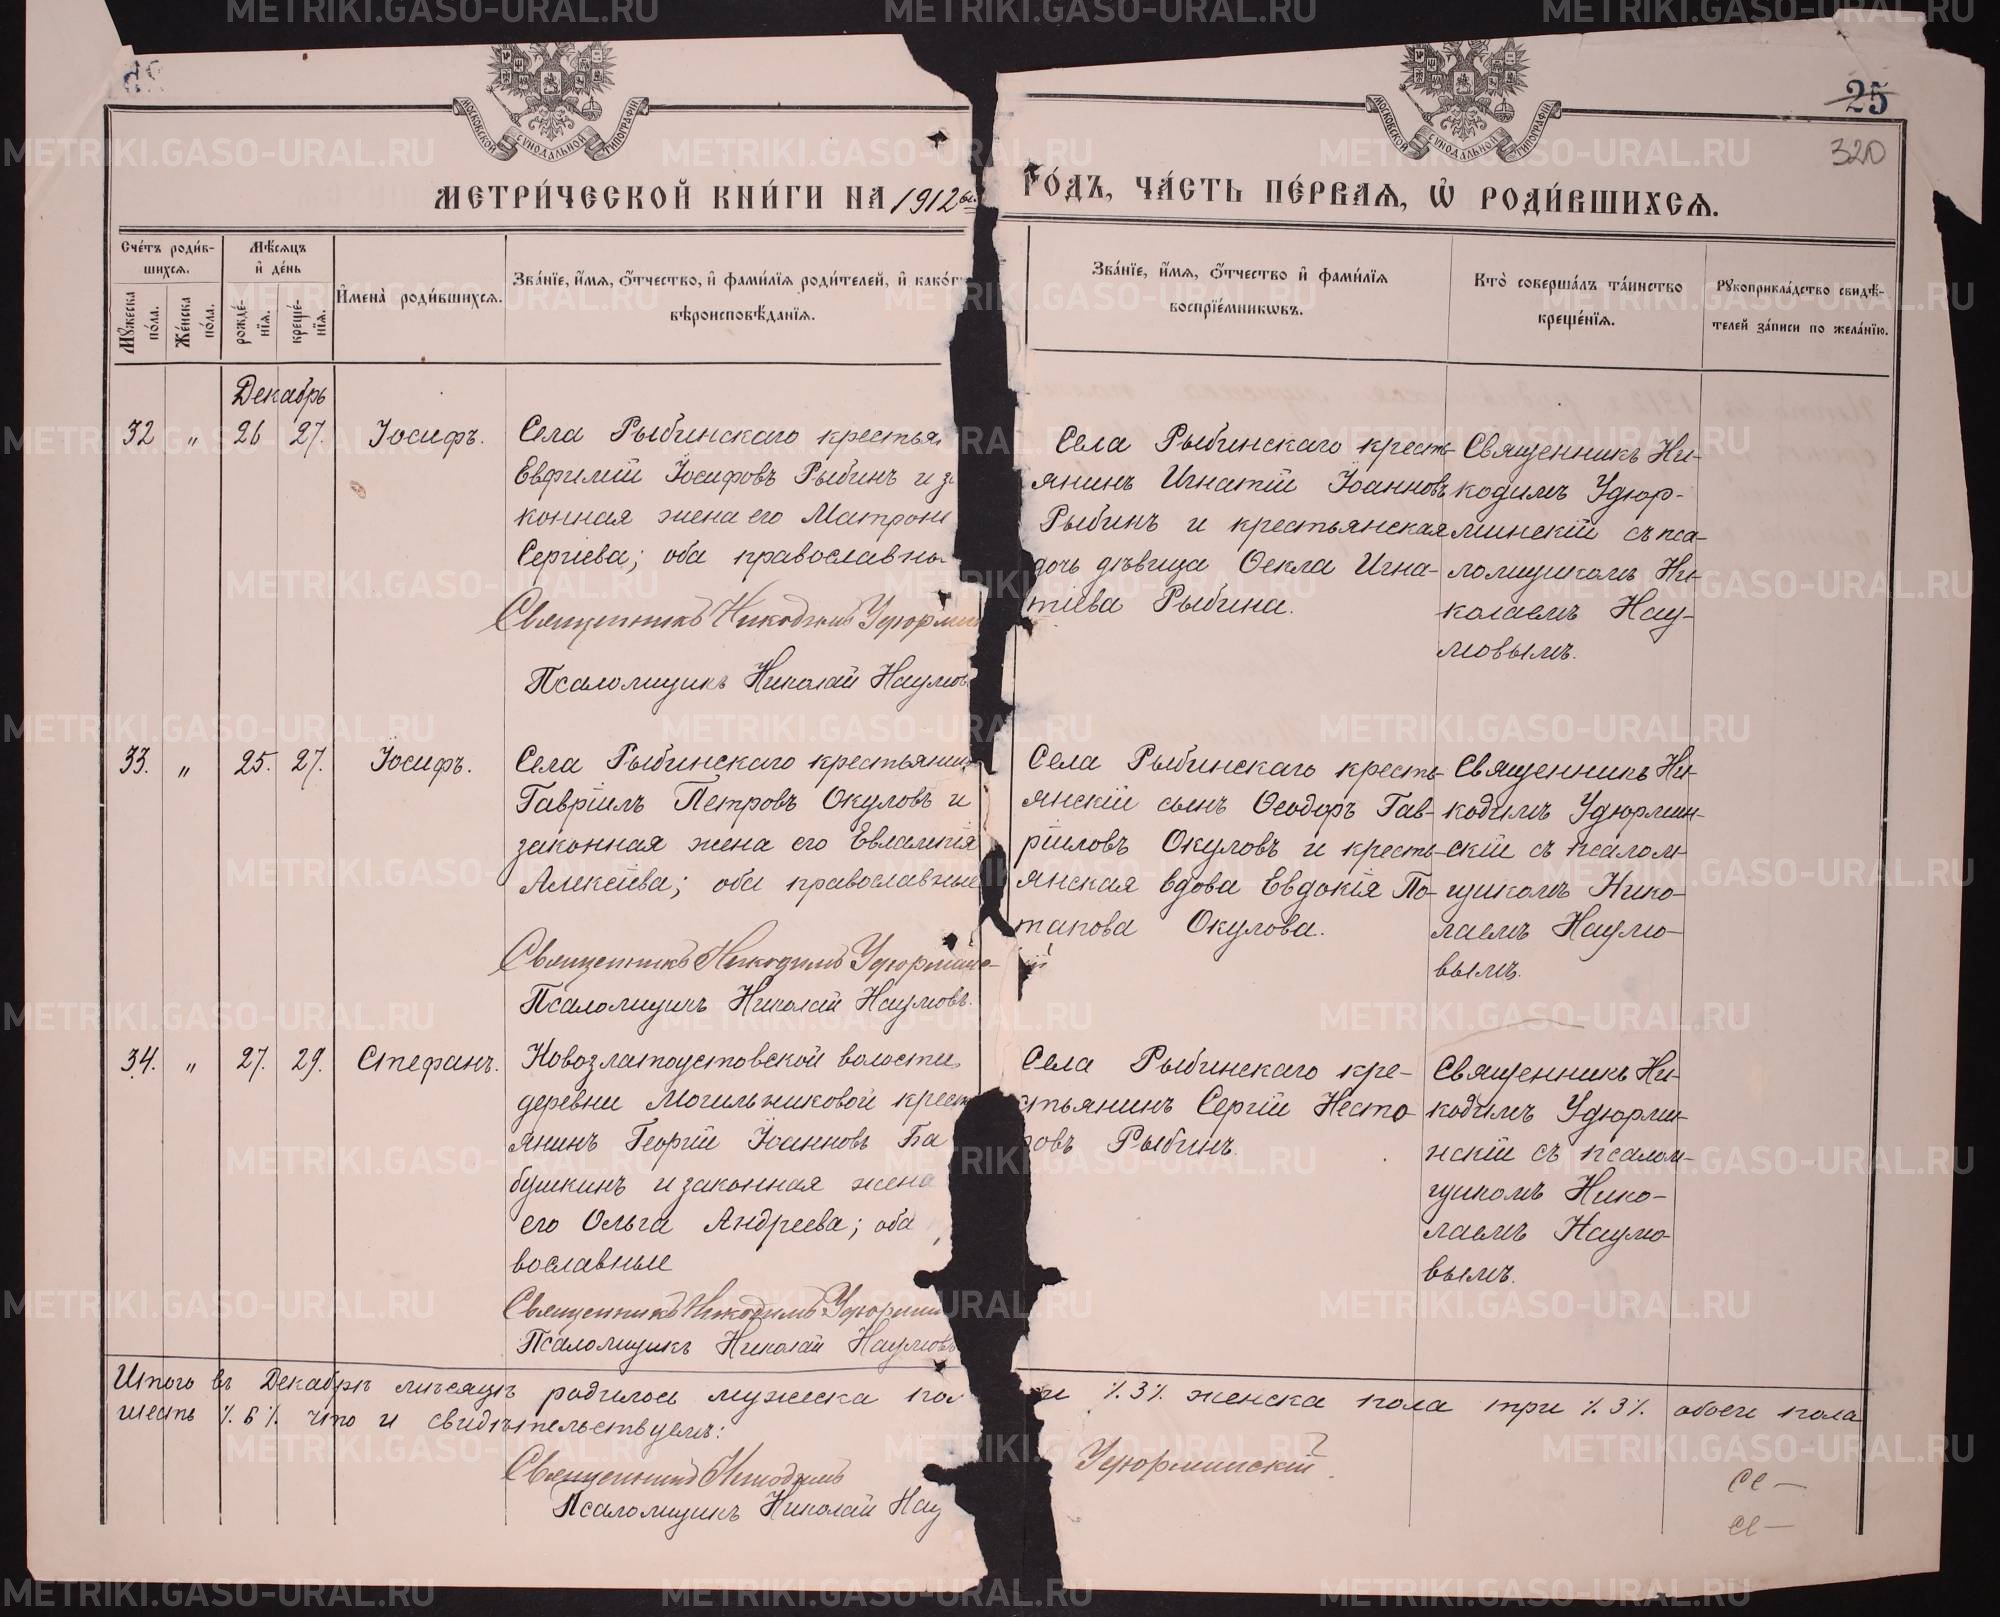 25
320
МОСКОВСКОЙ СѴНОДАЛЬНОЙ ТИПОГРАФІИ
МОСКОВСКОЙ СѴНОДАЛЬНОЙ ТИПОГРАФІИ
МЕТРИ́ЧЕСКОЙ КНИ́ГИ НА 1912 ый
ГО́ДЪ, ЧА́СТЬ ПЕ́РВАѦ, Ѽ РОДИ́ВШИХСѦ.
Сче́тъ роди́в-
шихсѧ.
Мꙋжеска по́ла.
Же́нска по́ла.
Мѣ́сѧцъ
и҆ де́нь
рожде́-
нїѧ.
креще́-
нїѧ.
И҆мена̀ роди́вшихсѧ.
Зва́нїе, и҆́мѧ, ѻ҆́тчество, и҆ фами́лїѧ роди́телей, и҆ како́г
вѣроисповѣ́данїѧ.
Зва́нїе, и҆́мѧ, ѻ҆́тчество и҆ фами́лїѧ
воспрїе́мникѡвъ.
Кто̀ соверша́лъ та́инство
креще́нїѧ.
Рꙋкоприкла́дство свидѣ́-
телей за́писи по жела́нїю.
Декабрь
32 „ 26 27. Іосифъ.
Села Рыбинскаго крестья
Евфимій Іосифовъ Рыбинъ и за
конная жена его Матрона
Сергіева; оба православны
Священникъ Никодимъ Удюрмин
Псаломщикъ Николай Наумовъ
Села Рыбинскаго кресть-
янинъ Игнатій Іоанновъ
Рыбинъ и крестьянская
дочь дѣвица Ѳекла Игна-
тіева Рыбина.
Священникъ Ни-
кодимъ Удюр-
минскій съ пса-
ломщикомъ Ни-
колаемъ Нау-
мовымъ.
33. „ 25. 27. Іосифъ.
Села Рыбинскаго крестьянинъ
Гавріилъ Петровъ Окуловъ и
законная жена его Евлампія
Алексіева; оба православные
Священникъ Никодимъ Удюрминс-
кій
Псаломщикъ Николай Наумовъ.
Села Рыбинскаго кресть-
янскій сынъ Ѳеодоръ Гав-
ріиловъ Окуловъ и кресть-
янская вдова Евдокія По-
тапова Окулова.
Священникъ Ни-
кодимъ Удюрмин-
скій съ псалом-
щикомъ Нико-
лаемъ Наумо-
вымъ.
34. „ 27. 29. Стефанъ.
Новозлатоустовской волости,
деревни Могильниковой кресть
янинъ Георгій Іоанновъ Ба
бушкинъ и законная жена
его Ольга Андреева; оба
вославные
Священникъ Никодимъ Удюрмин
Псаломщикъ Николай Наумовъ
Села Рыбинскаго кре-
стьянинъ Сергій Несто-
ровъ Рыбинъ.
Священникъ Ни-
кодимъ Удюрми-
нскій съ псалом-
щикомъ Нико-
лаемъ Наумо-
вымъ.
Итого въ Декабрѣ мѣсяцѣ родилось мужеска пол ри %3% женска пола три %3% обоего пола
шесть %6% что и свидѣтельствуемъ:
Священникъ Никодимъ Удюрминскій
Псаломщикъ Николай Нау
METRIKI.GASO-URAL.RU